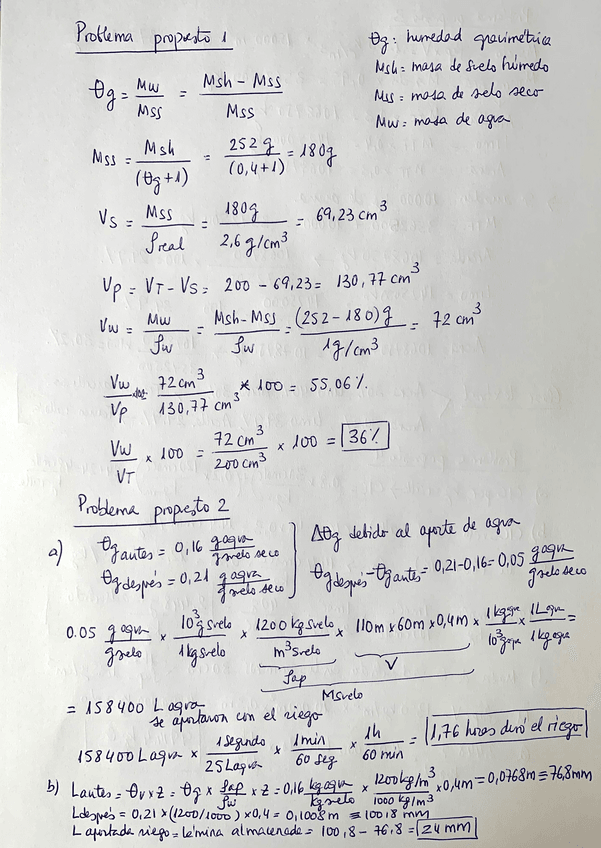 Problema propuesto 1
θg: humedad gravimétrica
Msh= masa de suelo húmedo
Mss = masa de suelo seco
Mw= masa de agua
θg = Mw/Mss = (Msh - Mss)/Mss
Mss = Msh/(θg+1) = 252 g/(0,4+1) = 180g
Vs = Mss/ρreal = 180g/2,6 g/cm³ = 69,23 cm³
Vp = VT - Vs = 200 - 69,23 = 130,77 cm³
Vw = Mw/ρw = (Msh-Mss)/ρw = (252-180)g/1g/cm³ = 72 cm³
Vw/Vp 72cm³/130,77 cm³ * 100 = 55,06 %
Vw/VT × 100 = 72 cm³/200 cm³ × 100 = 36%
Problema propuesto 2
a) θg antes = 0,16 g agua/g suelo seco
θg después = 0,21 g agua/g suelo seco
Δθg debido al aporte de agua
θg después - θg antes = 0,21-0,16 = 0,05 g agua/g suelo seco
0.05 g agua/g suelo × 10³ g suelo/1 kg suelo × 1200 kg suelo/m³ suelo × 110m × 60m × 0,4m × 1 kg agua/10³ g agua × 1 L agua/1 kg agua =
ρap V
Msuelo
= 158400 L agua
se aportaron con el riego
158400 L agua × 1 segundo/25 L agua × 1 min/60 seg × 1h/60 min = 1,76 horas duró el riego
b) Lantes = θv × z = θg × ρap/ρw × z = 0,16 kg agua/kg suelo × 1200 kg/m³/1000 kg/m³ × 0,4m = 0,0768m ≡ 76,8mm
Ldespués = 0,21 × (1200/1000) × 0,4 = 0,1008m ≡ 100,8 mm
L aportada riego = lámina almacenada = 100,8 - 76,8 = 24 mm